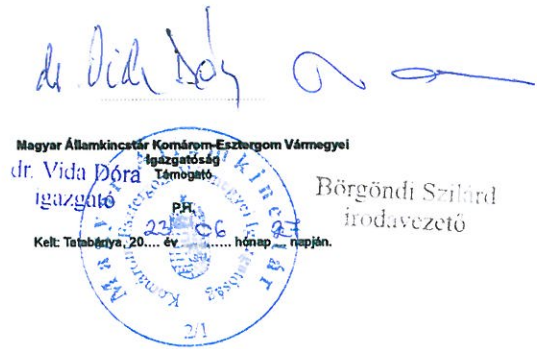 dr Vida Dóra
Magyar Államkincstár Komárom-Esztergom Vármegyei
Igazgatóság
Támogató
dr. Vida Dóra
igazgató
Börgöndi Szilárd
irodavezető
P.H.
Kelt: Tatabánya, 2023 év 06 hónap 27 napján.
Magyar Államkincstár
Komárom-Esztergom Vármegyei Igazgatóság
2/1